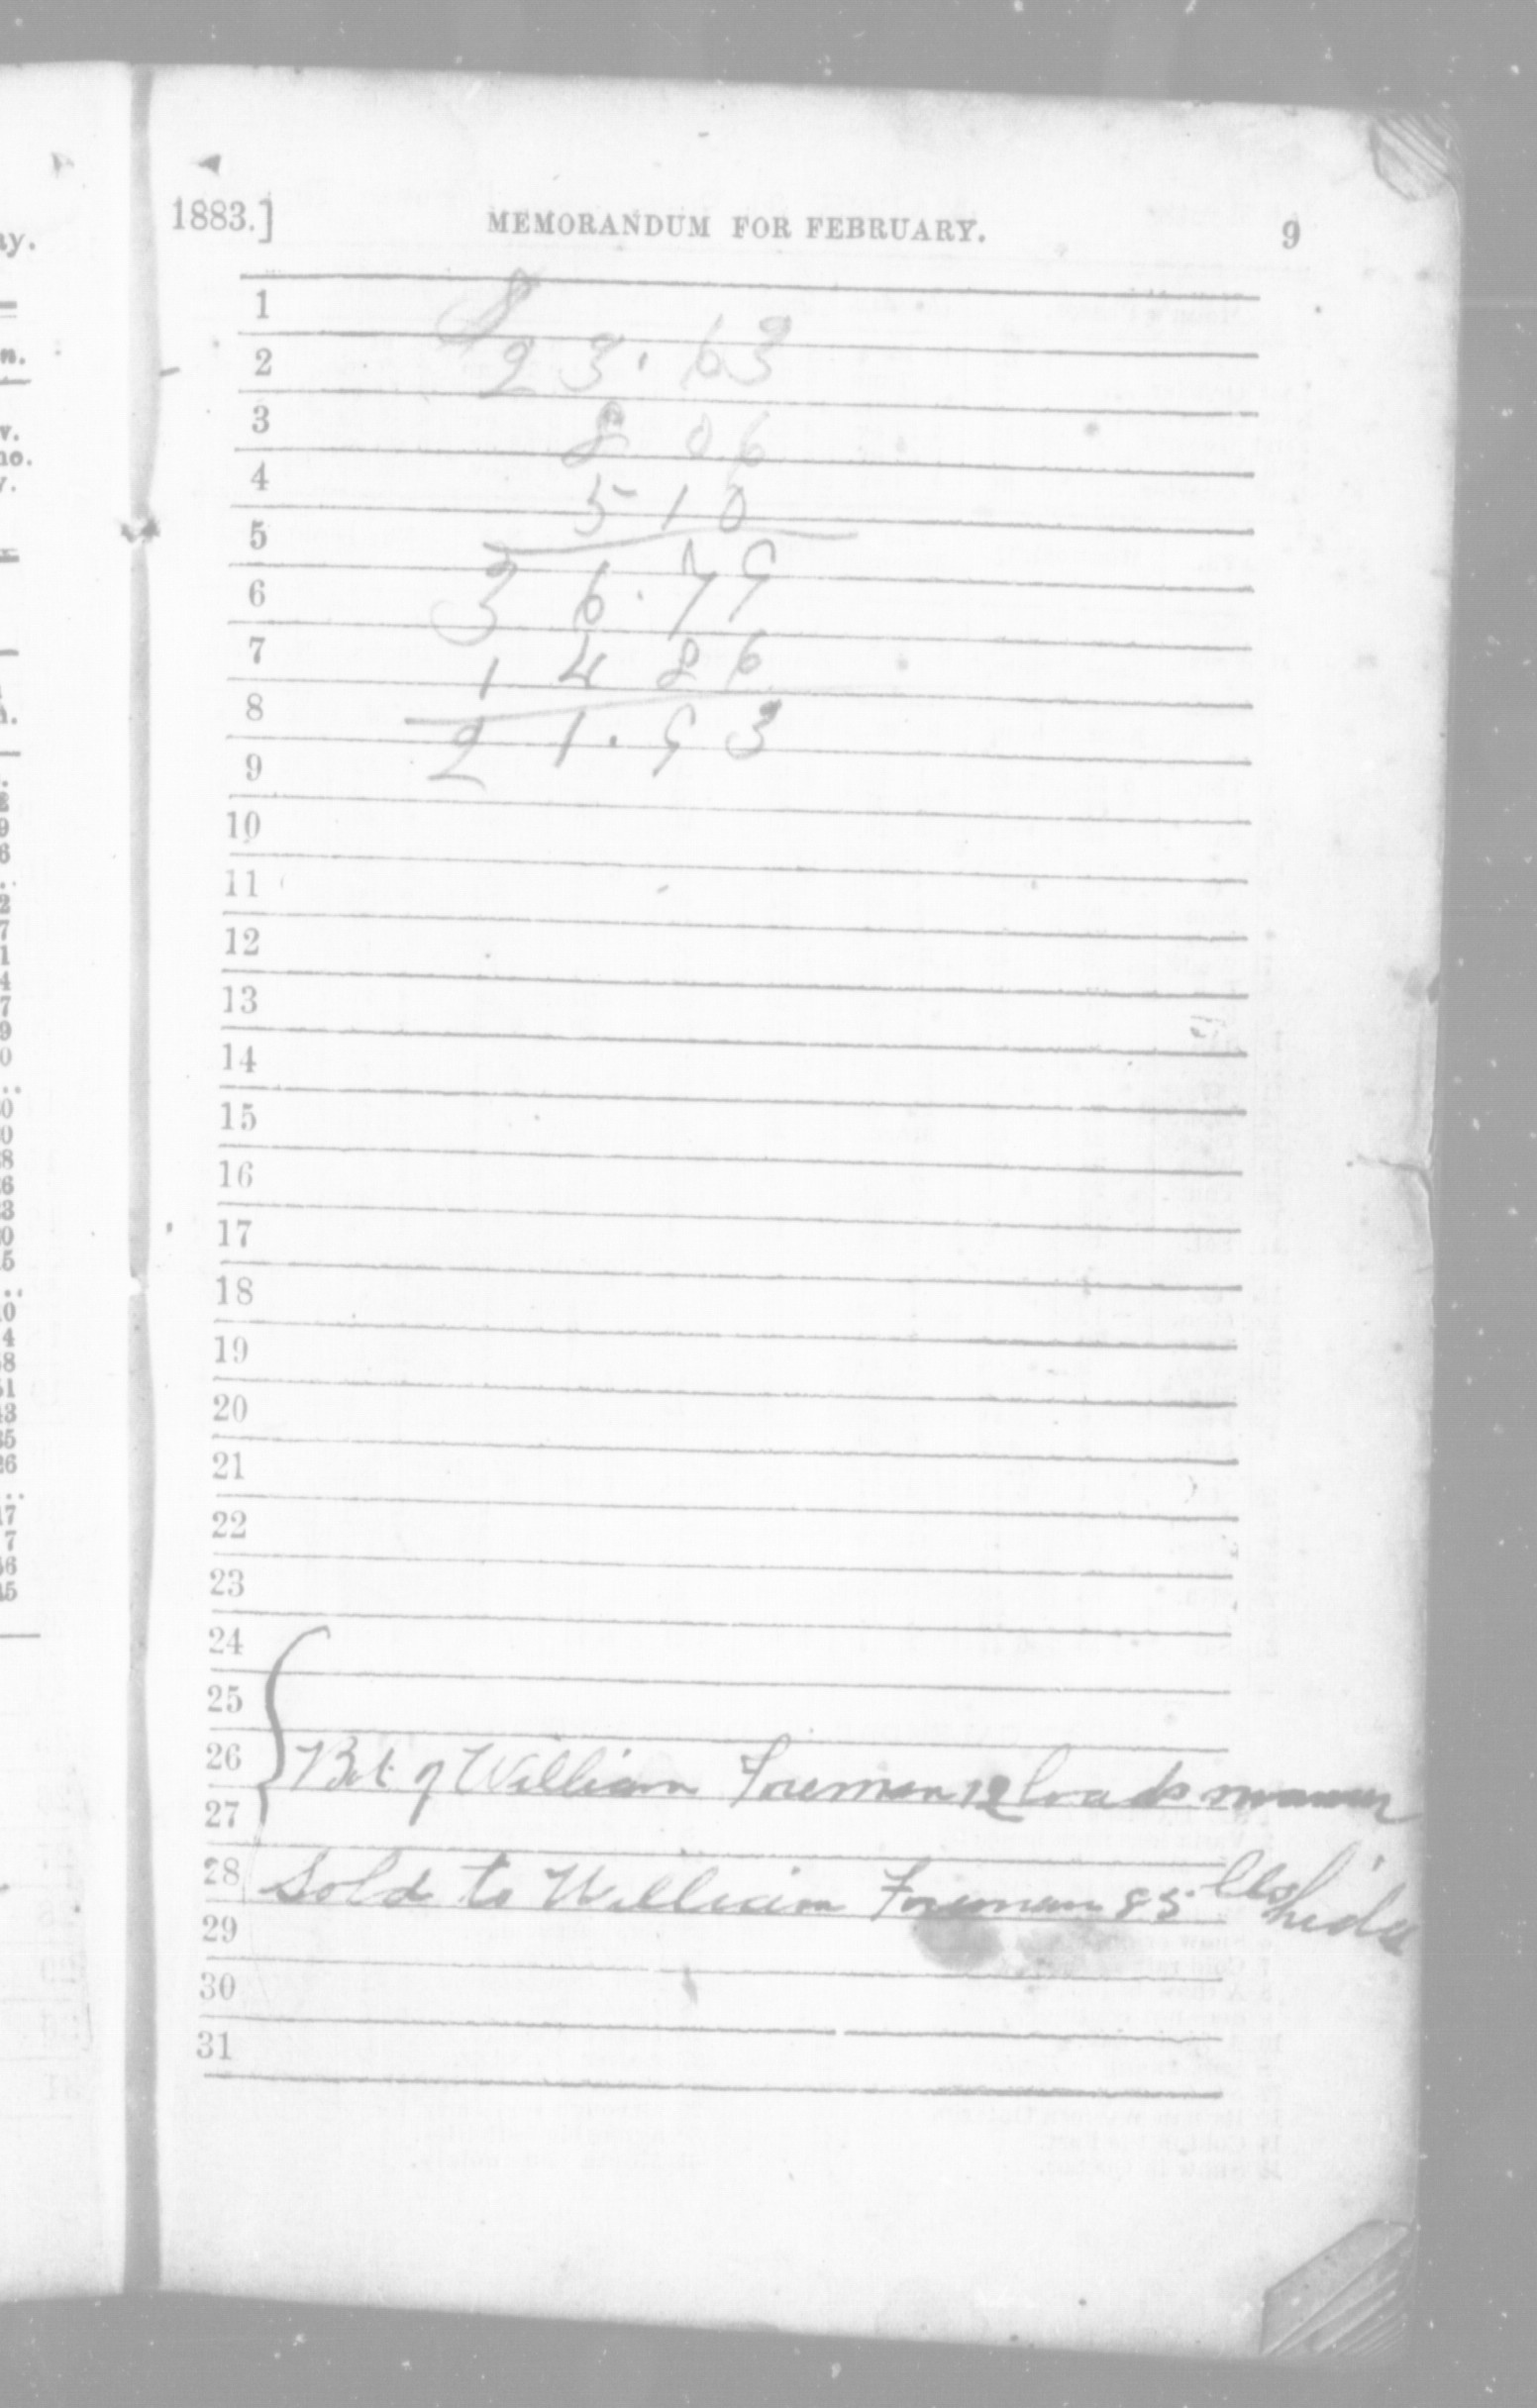 1883.] MEMORANDUM FOR FEBRUARY. 9
1
2 23.63
3 8 06
4 5 10
5
6 36.79
7 14 86
8
9 21.93
10
11
12
13
14
15
16
17
18
19
20
21
22
23
24
25
26 Bot of William Foreman 12 loads
27
28 Sold to William Foreman 85 lbs hides
29
30
31